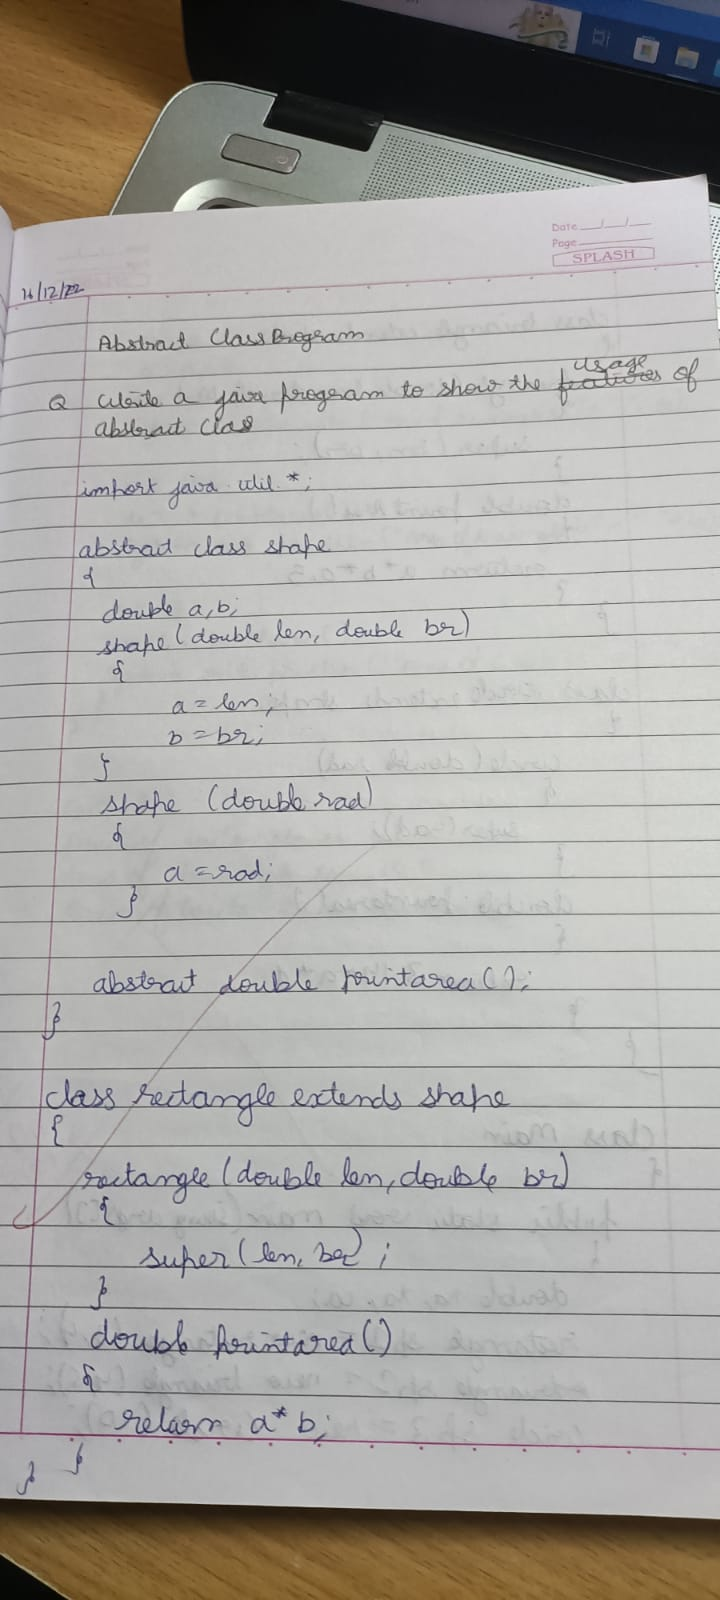 Date __/__/__
Page
SPLASH
/12/22
Abstract Class Program
Q Write a java program to show the features usage of
abstract clas
import java.util.*;
abstract class shape
{
double a,b;
shape(double len, double br)
{
a=len;
b=br;
}
shape (double rad)
{
a=rad;
}
abstract double printarea();
}
class rectangle extends shape
{
rectangle(double len, double br)
{
super(len, br);
}
double printarea()
{
return a*b;
}
}